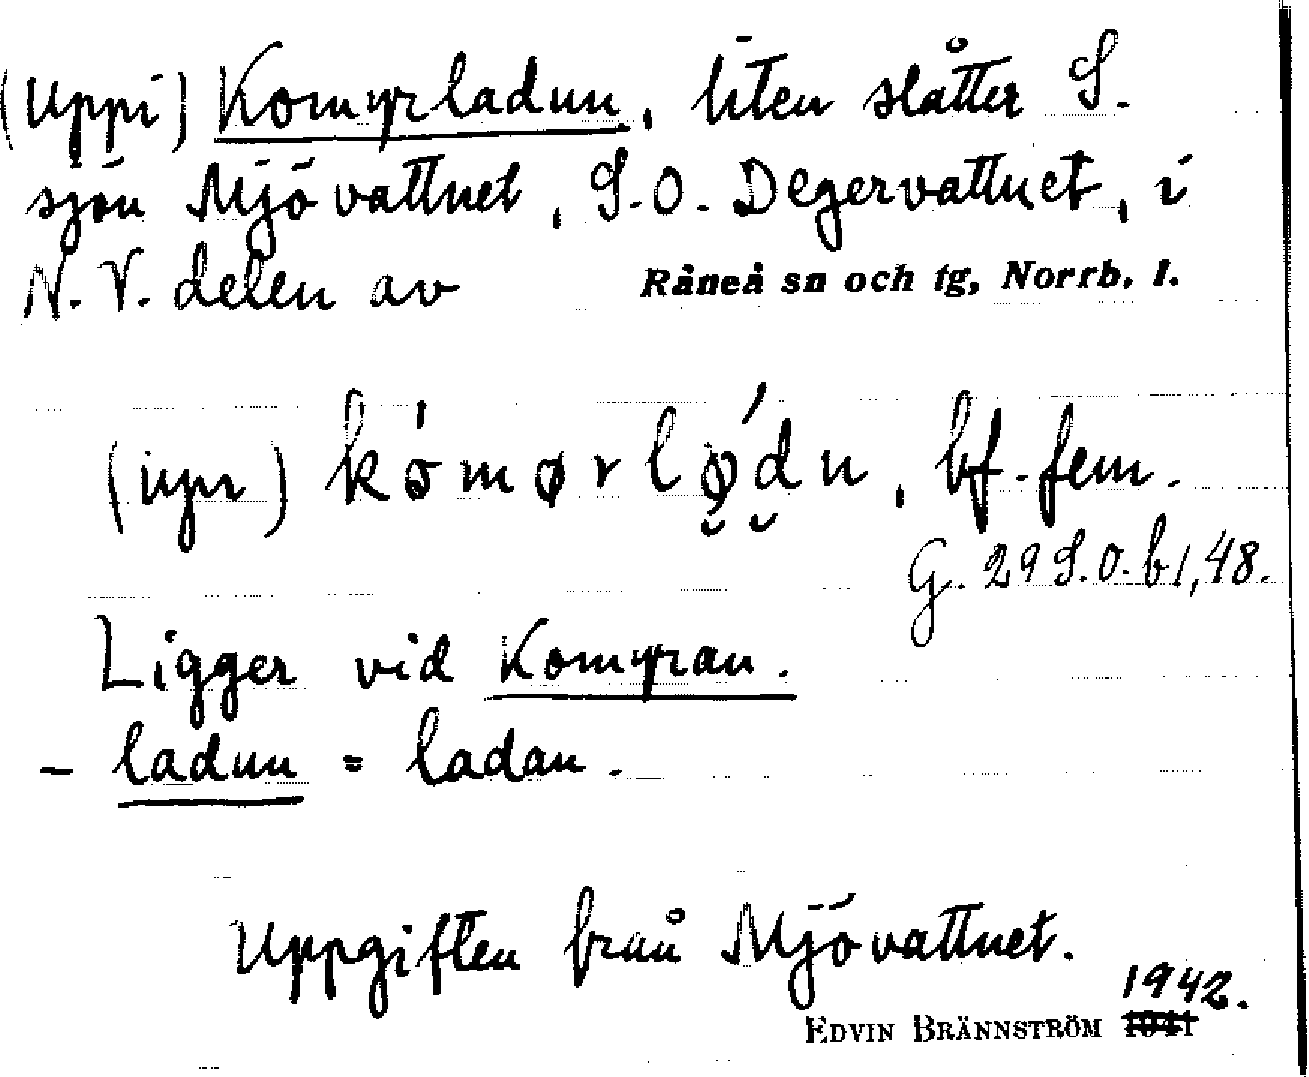 (Uppi) Komyrladun, liten slåtter S.
sjön Mjövattnet, S.O. Degervattnet, i
N.V. delen av Råneå sn och tg, Norrb. l.
kó̤mørlǫ́dn, bf. fem.
G. 29 S.O. b 1, 48.
Ligger vid Komyran.
- ladun = ladan.
Uppgiften från Mjövattnet.
1942.
EDVIN BRÄNNSTRÖM 1941